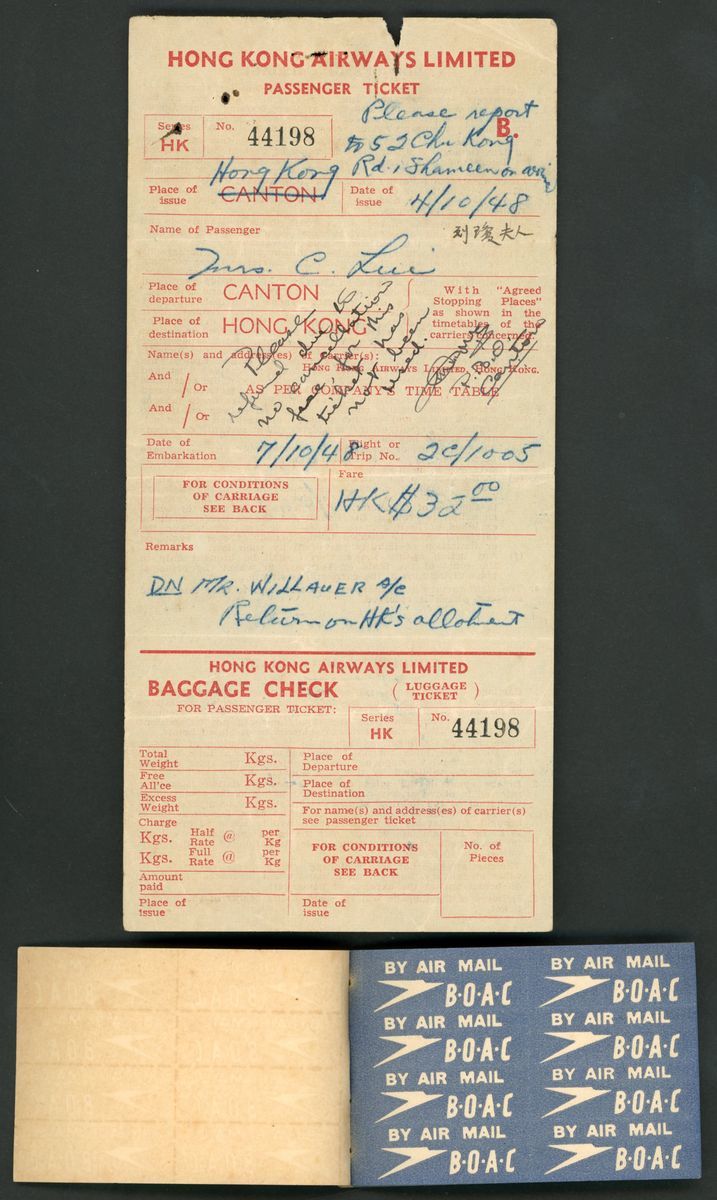 HONG KONG AIRWAYS LIMITED
PASSENGER TICKET
Please report
to 52 Chu Kong
Rd., Shameen on
B.
Series
HK
No. 44198
Hong Kong
Place of issue CANTON
Date of issue 4/10/48
Name of Passenger
夫人
Mrs. C. Lui
Place of departure CANTON
Place of destination HONG KONG
With "Agreed
Stopping Places"
as shown in the
timetables of the
carriers concerned.
Name(s) and address(es) of carrier(s):
HONG KONG AIRWAYS LIMITED, HONG KONG.
And / Or AS PER COMPANY'S TIME TABLE
And / Or
Please
refund due to
no cancellation
for this
ticket has
not been
used.
Canton
Date of Embarkation 7/10/48
Flight or Trip No. 2C/1005
FOR CONDITIONS
OF CARRIAGE
SEE BACK
Fare
HK$32.00
Remarks
DN MR. WILLAUER A/c
Return on HK's allotment
HONG KONG AIRWAYS LIMITED
BAGGAGE CHECK (LUGGAGE TICKET)
FOR PASSENGER TICKET:
Series
HK
No. 44198
Total Weight Kgs.
Free All'ce Kgs.
Excess Weight Kgs.
Charge
Kgs. Half Rate @ per Kg
Kgs. Full Rate @ per Kg
Amount paid
Place of issue
Place of Departure
Place of Destination
For name(s) and address(es) of carrier(s)
see passenger ticket
FOR CONDITIONS
OF CARRIAGE
SEE BACK
No. of
Pieces
Date of issue
BY AIR MAIL
B·O·A·C
BY AIR MAIL
B·O·A·C
BY AIR MAIL
B·O·A·C
BY AIR MAIL
B·O·A·C
BY AIR MAIL
B·O·A·C
BY AIR MAIL
B·O·A·C
BY AIR MAIL
B·O·A·C
BY AIR MAIL
B·O·A·C